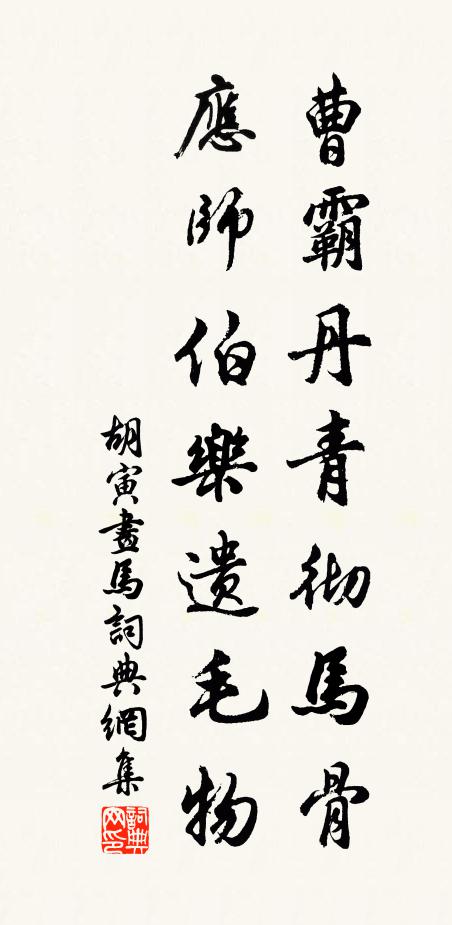 曹霸丹青彻馬骨
應師伯樂遗毛物
胡寅畫馬詞典網集
詞典网印